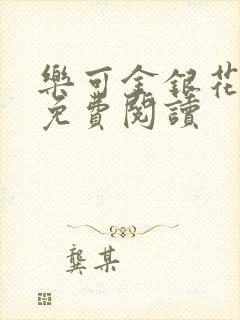 樂可金銀花
免費閱讀
龔某